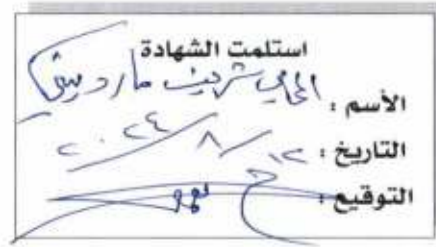 استلمت الشهادة
الأسم : المحامي شريف مارديني
التاريخ : ١٢ / ٨ / ٢٠٢٤
التوقيع :